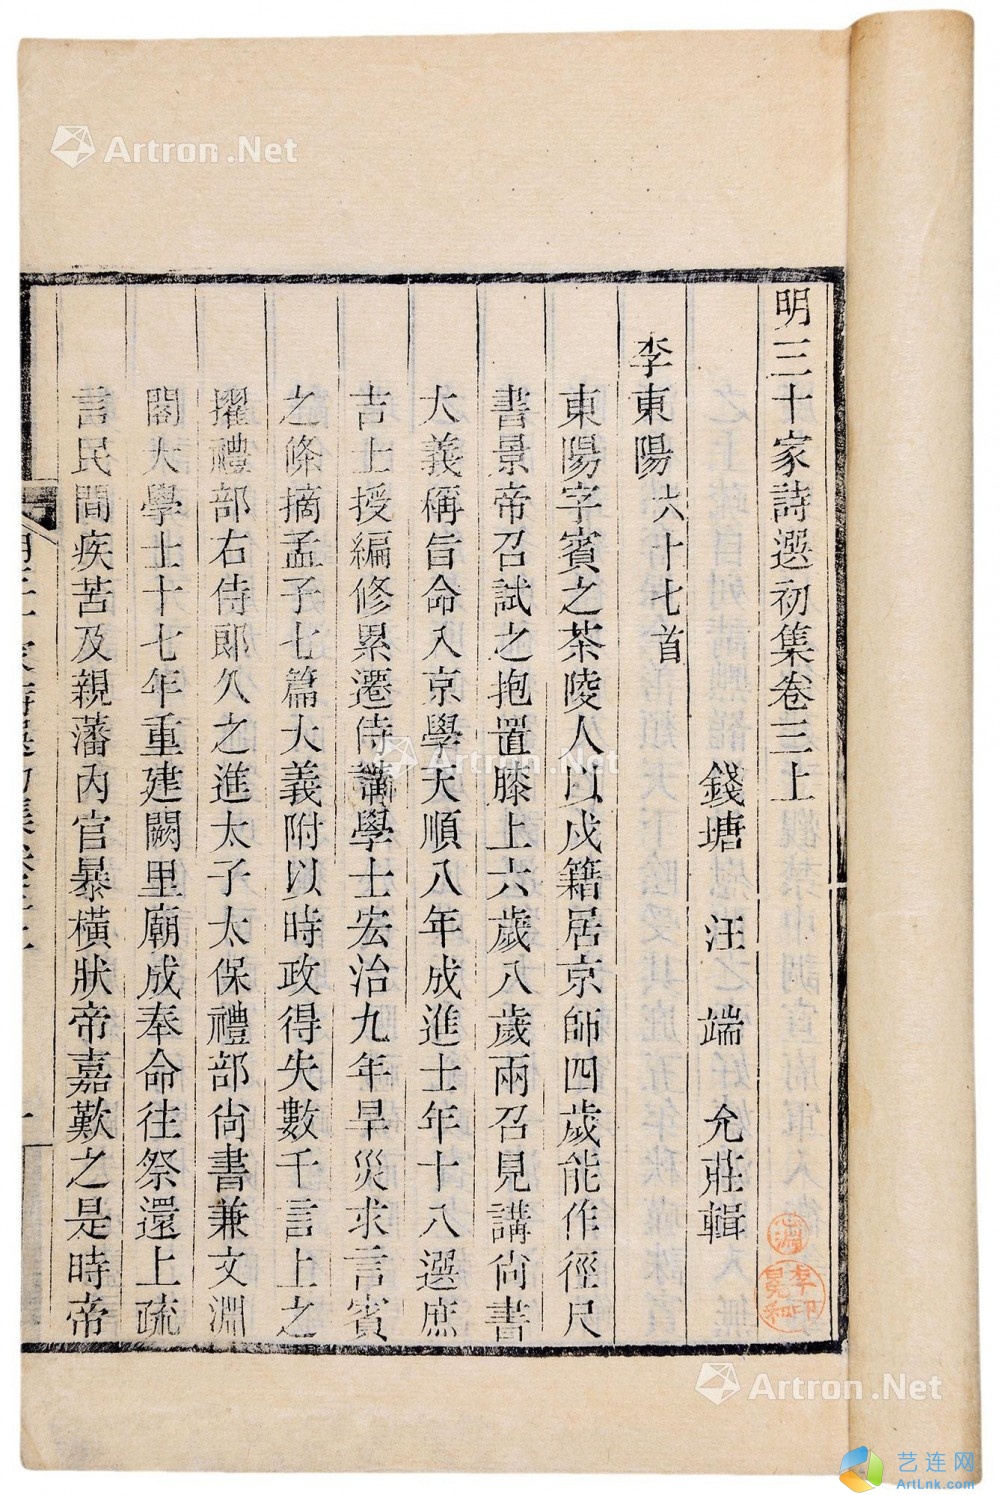 明三十家詩選初集卷三上
錢塘 汪 端 允莊輯
李東陽六十七首
東陽字賓之茶陵人以戍籍居京師四歲能作徑尺
書景帝召試之抱置膝上六歲八歲兩召見講尙書
大義稱旨命入京學天順八年成進士年十八選庶
吉士授編修累遷侍講學士宏治九年旱災求言賓
之條摘孟子七篇大義附以時政得失數千言上之
擢禮部右侍郎久之進太子太保禮部尙書兼文淵
閣大學士十七年重建闕里廟成奉命往祭還上疏
言民間疾苦及親藩內官暴橫狀帝嘉歎之是時帝
Artron.Net
Artron.Net
Artron.Net
艺连网
ArtLnk.com